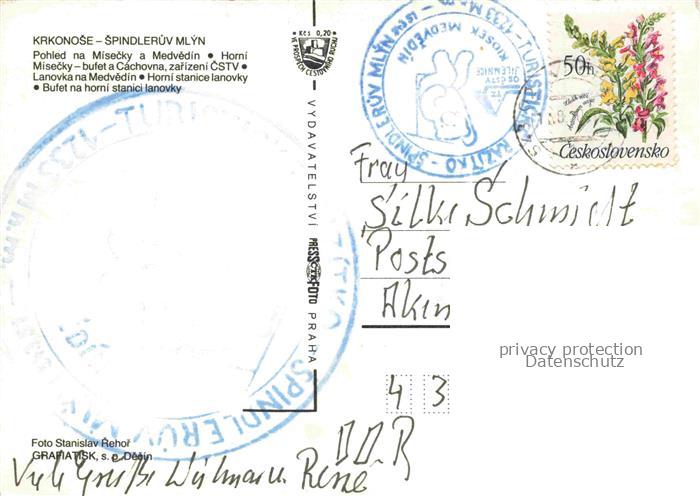 KRKONOŠE – ŠPINDLERŮV MLÝN
Pohled na Mísečky a Medvědín ● Horní
Mísečky – bufet a Cáchovna, zařízení ČSTV ●
Lanovka na Medvědín ● Horní stanice lanovky
● Bufet na horní stanici lanovky
Kčs 0,20
VE PROSPĚCH CESTOVNÍHO RUCHU
VYDAVATELSTVÍ PRESSFOTO PRAHA
TURISTICKÉ RAZÍTKO - ŠPINDLERŮV MLÝN - 1233 M n. m.
KIOSEK MEDVĚDÍN
JILEMNICE
50h
Československo
TURI
ZÍTKO - ŠPINDLERŮV MLÝ
1233 M n. m.
Frau
Silke Schmidt
Posts
Aken
privacy protection
Datenschutz
4 3
DDR
Foto Stanislav Řehoř
GRAFIATISK, s. p. Děčín
Viele Grüße René